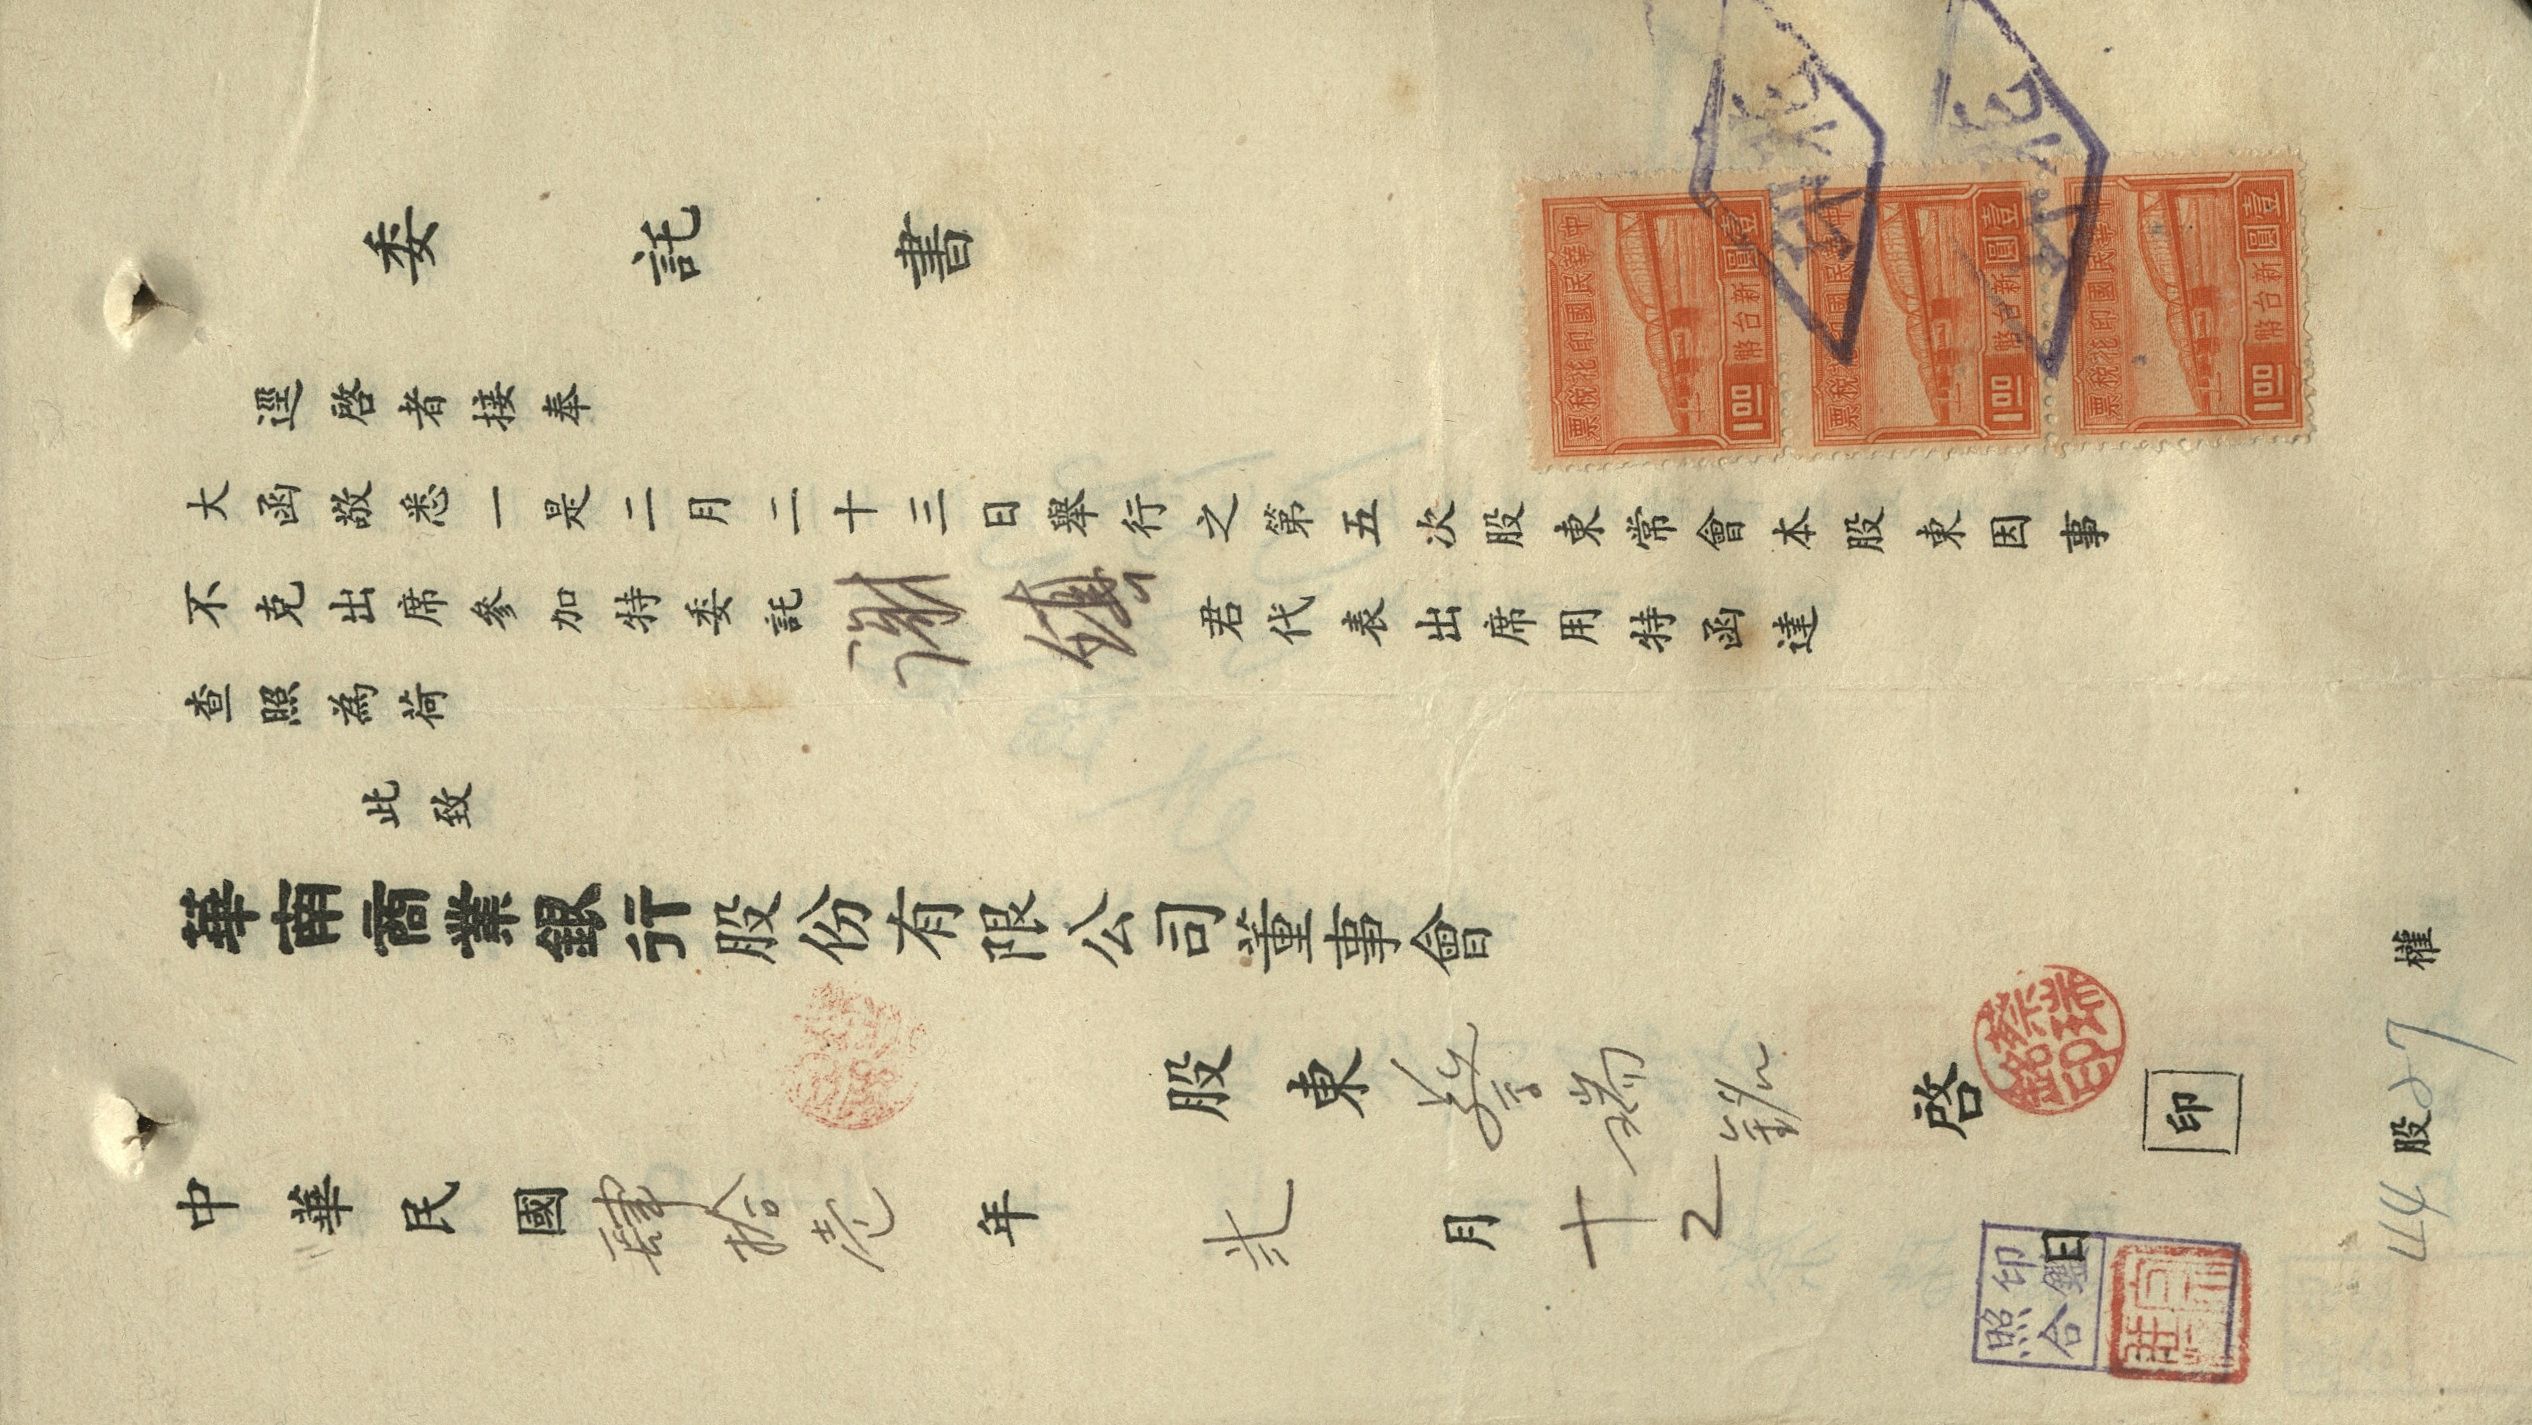 委託書
逕啓者接奉
大函敬悉一是二月二十三日舉行之第五次股東常會本股東因事
不克出席參加特委託謝鎮君代表出席用特函達
查照為荷
此致
華南商業銀行股份有限公司董事會
股東蔡瑞銘啓
印
蔡瑞銘印
中華民國肆拾壹年弍月十2日
44股27權
印鑑
照合
中華民國印花稅票
壹圓新台幣
1.00
中華民國印花稅票
壹圓新台幣
1.00
中華民國印花稅票
壹圓新台幣
1.00